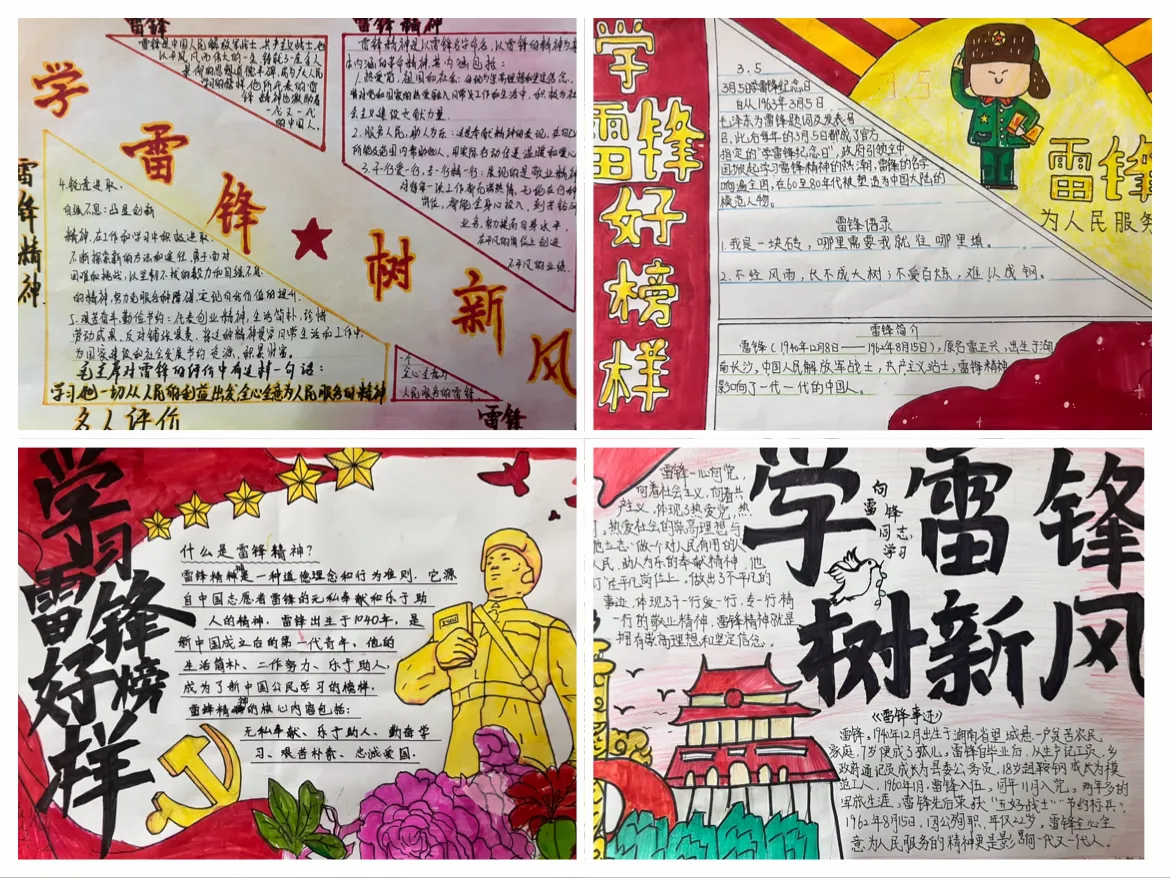 雷锋精神
学
雷
锋
树
新
风
雷锋是中国人民解放军战士,共产主义战士,他
的中国人。
雷锋精神是以雷锋名字命名,以雷锋的精神为基
本内涵的革命精神,其内涵包括:
1.热爱党、祖国和社会:
会主义建设贡献力量。
2.服务人民,助人为乐:
3.干一行爱一行,专一行精一行:
业务,努力提高自身水平,
在平凡的岗位上创造
不平凡的业绩。
雷锋精神
4.锐意进取,
自强不息:凸显创新
精神,在工作和学习中积极进取,
不断探索新的方法和途径,勇于面对
困难和挑战,以坚韧不拔的毅力和自强不息
的精神,努力克服各种障碍,实现自我价值的提升。
5.艰苦奋斗,勤俭节约:代表创业精神,生活简朴,珍惜
劳动成果,反对铺张浪费,将这种精神贯穿日常生活和工作中,
为国家建设和社会发展节约资源,积累财富。
毛主席对雷锋的评价中有这样一句话:
学习他一切从人民的利益出发全心全意为人民服务的精神
一个
全心全意为
人民服务的雷锋
名人评价
雷锋
学
雷锋
好
榜
样
3.5
3月5日学雷锋纪念日
自从1963年3月5日
毛泽东为雷锋题词及发表号
召,此后每年的3月5日都成了官方
指定的“学雷锋纪念日”,政府引领全中
国掀起学习雷锋精神的热潮,雷锋的名字
响遍全国,在60至80年代被塑造为中国大陆的
模范人物。
雷锋语录
1.我是一块砖,哪里需要我就往哪里填。
2.不经风雨,长不成大树;不受百炼,难以成钢。
3.5
雷锋
为人民服务
雷锋简介
雷锋(1940年12月18日——1962年8月15日),原名雷正兴,出生于湖
南长沙,中国人民解放军战士,共产主义战士,雷锋精神
影响了一代一代的中国人。
学习
雷锋
好榜
样
什么是雷锋精神?
雷锋精神是一种道德理念和行为准则,它源
自中国志愿者雷锋的无私奉献和乐于助
人的精神,雷锋出生于1040年,是
新中国成立后的第一代青年,他的
生活简朴、工作努力、乐于助人,
成为了新中国公民学习的榜样。
雷锋精神的核心内容包括:
无私奉献、乐于助人、勤奋学
习、艰苦朴素、忠诚爱国。
雷锋一心向党,
向着社会主义,向着共
产主义,体现了热爱党,热
热爱社会的崇高理想与
他立志“做一个对人民有用的人
人民,助人为乐的奉献精神,他
在平凡岗位上,做出了不平凡的
事迹,体现了干一行爱一行,专一行精
一行的敬业精神,雷锋精神就是
拥有崇高理想和坚定信念。
学雷锋
向
雷
锋
同志,
学习
树新风
《雷锋事迹》
雷锋,1940年12月出生于湖南省望城县一户贫苦农民
家庭,7岁便成了孤儿。雷锋自毕业后,从生产记工员,乡
政府通讯员成长为县委公务员,18岁赴鞍钢成长为模
范工人,1960年1月,雷锋入伍,同年11月入党,两年多的
军旅生涯,雷锋先后荣获“五好战士”“节约标兵”。
1962年8月15日,因公殉职,年仅22岁,雷锋全心全
意为人民服务的精神更是影响一代又一代人。